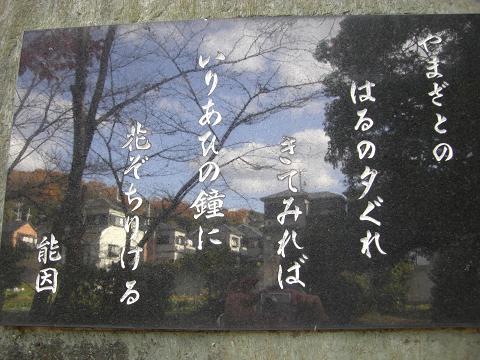 やまざとの
はるの夕ぐれ
きてみれば
いりあひの鐘に
花ぞちりける
能因